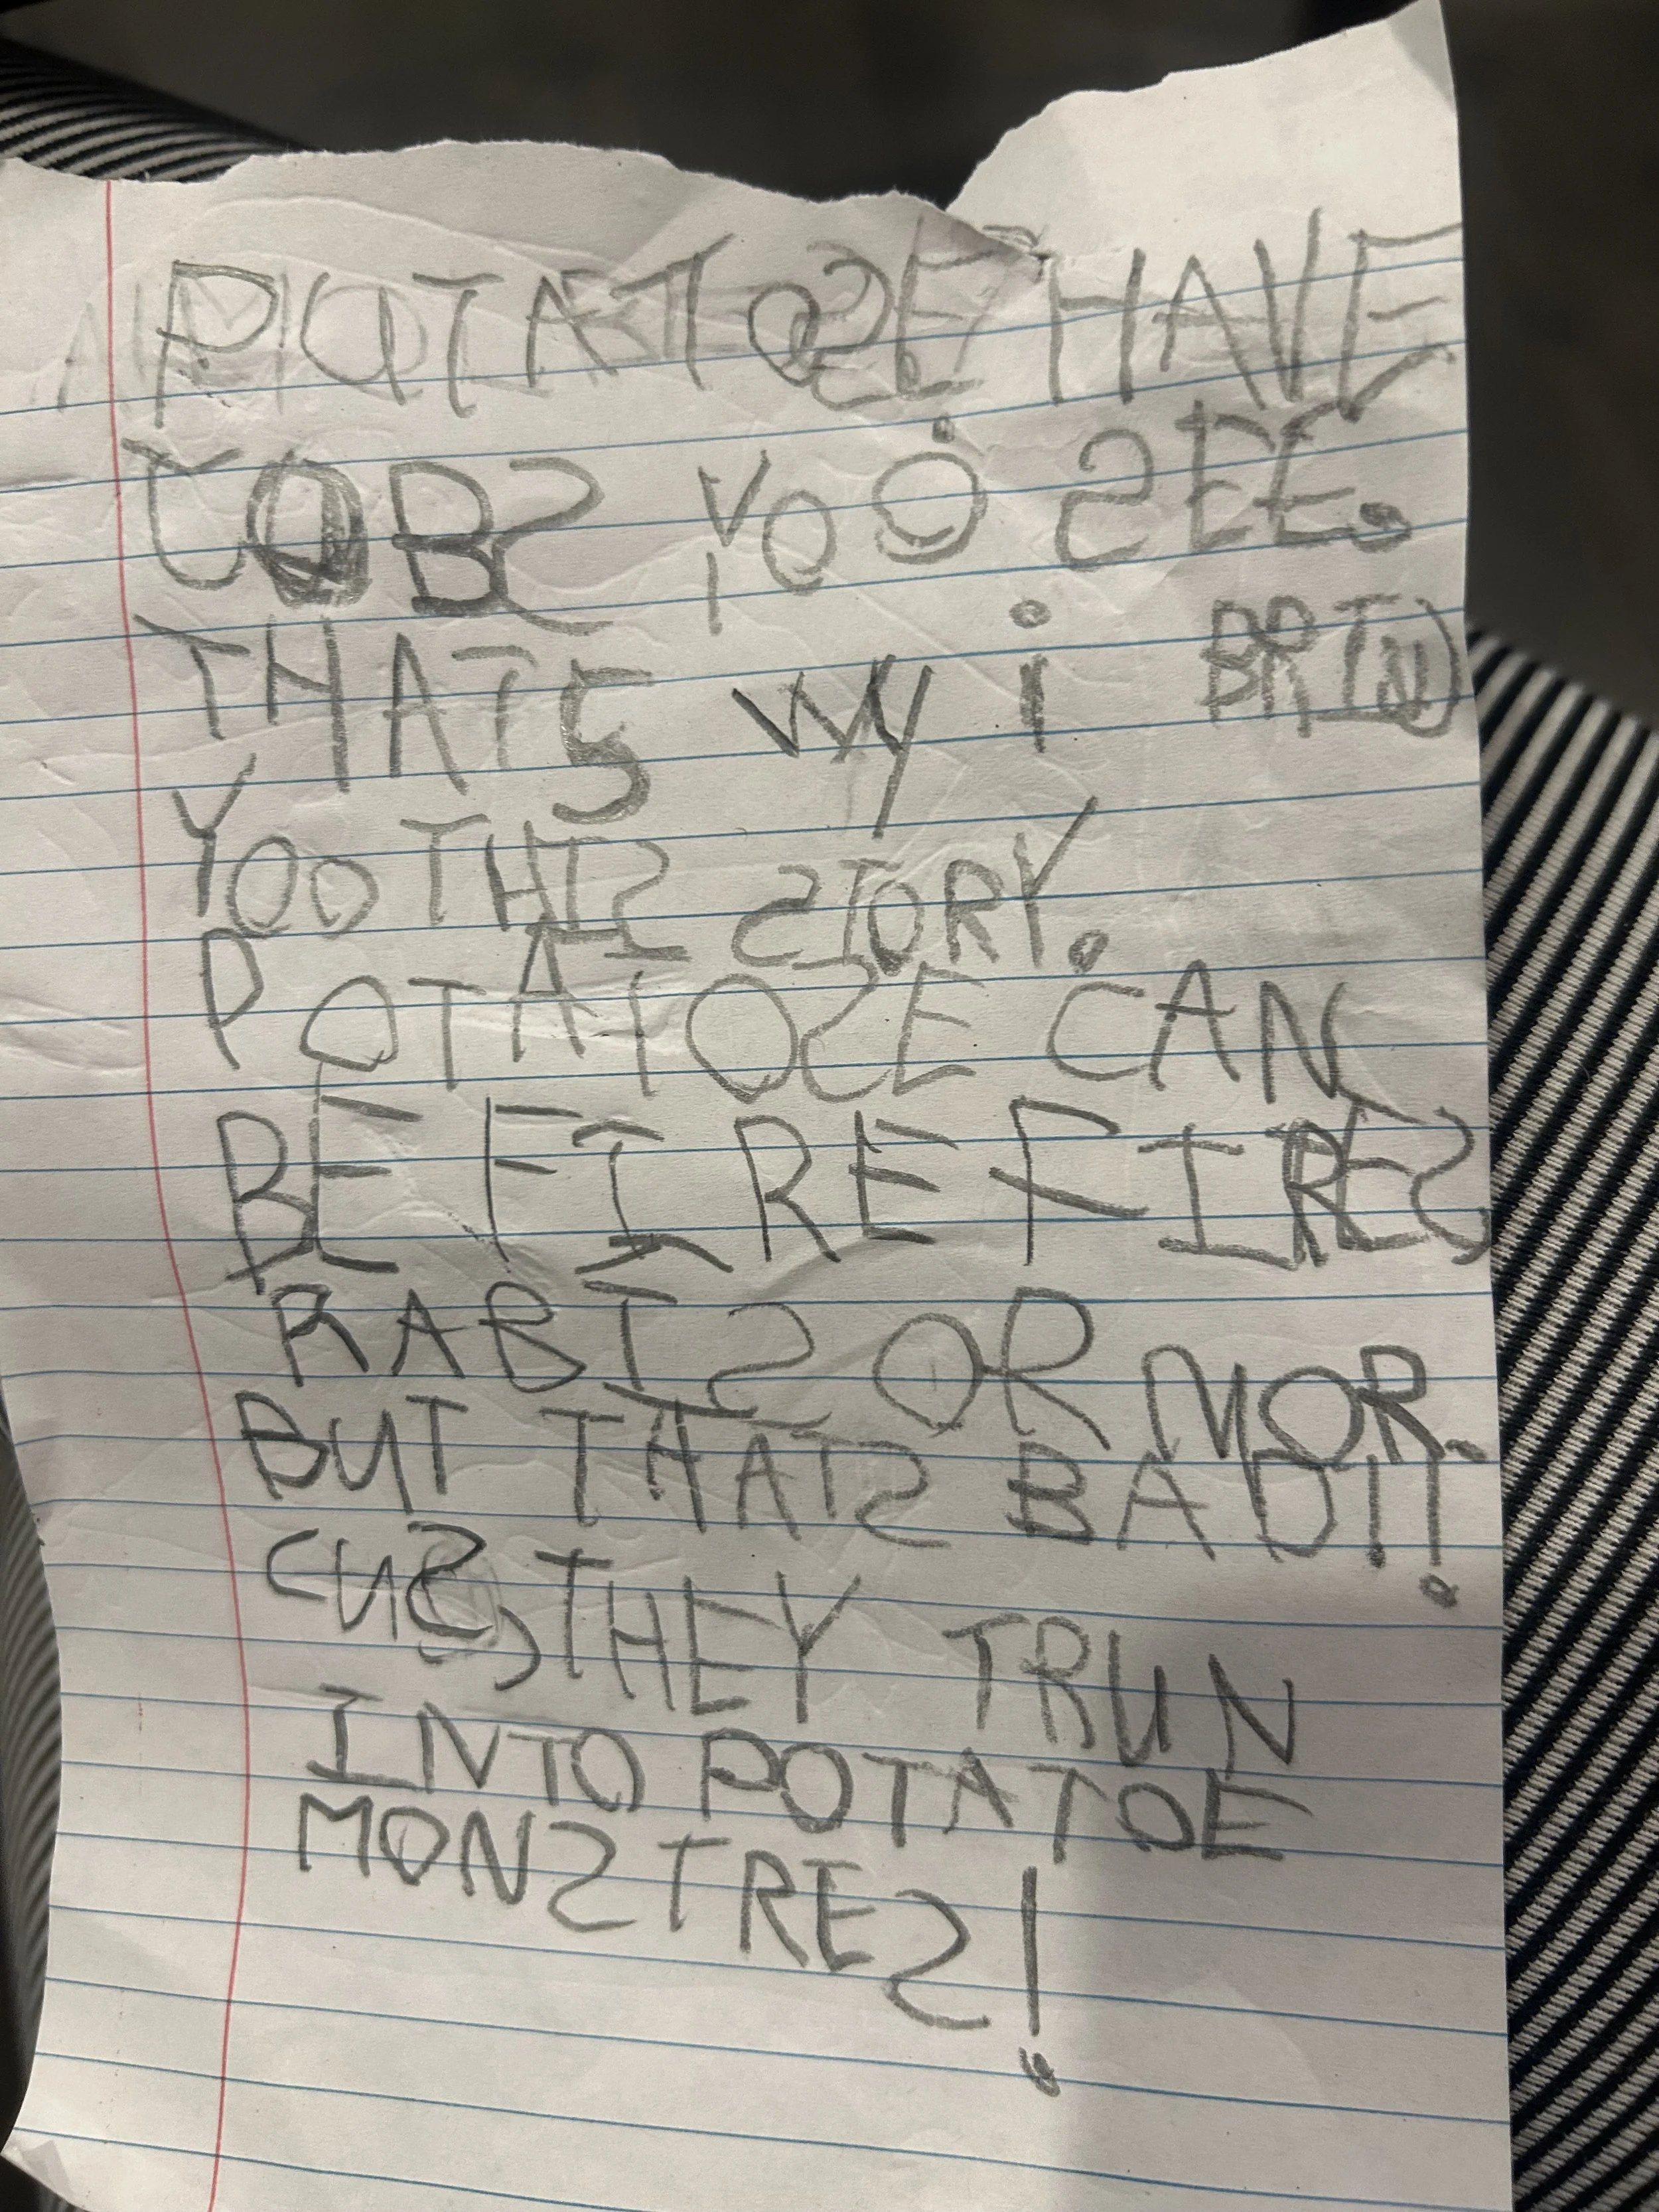 POTATOSE HAVE
JOBS YOO SEE.
THATS WY i BRING
YOO THIS STORY.
POTATOSE CAN
BE FIREFIRES
RABIS OR MOR.
BUT THATS BAD!!
CUS, THEY TRUN
INTO POTATOE
MONSTRES!